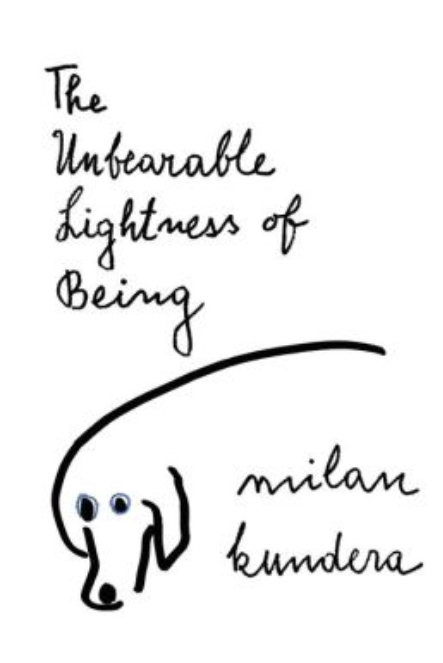 The
Unbearable
Lightness of
Being
milan
kundera